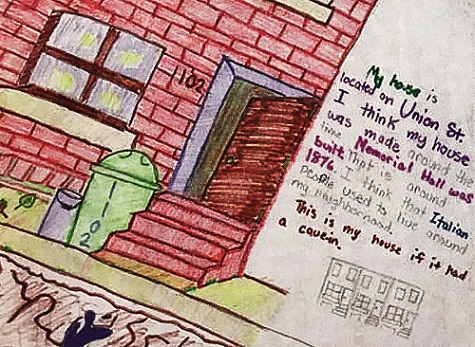 1102
2010
My house is
located on Union St.
I think my house
was made around the
time Memorial Hall was
built that is around
1876 I think that Italian
people used to live around
my neighborhood.
This is my house if it had
a cousin.